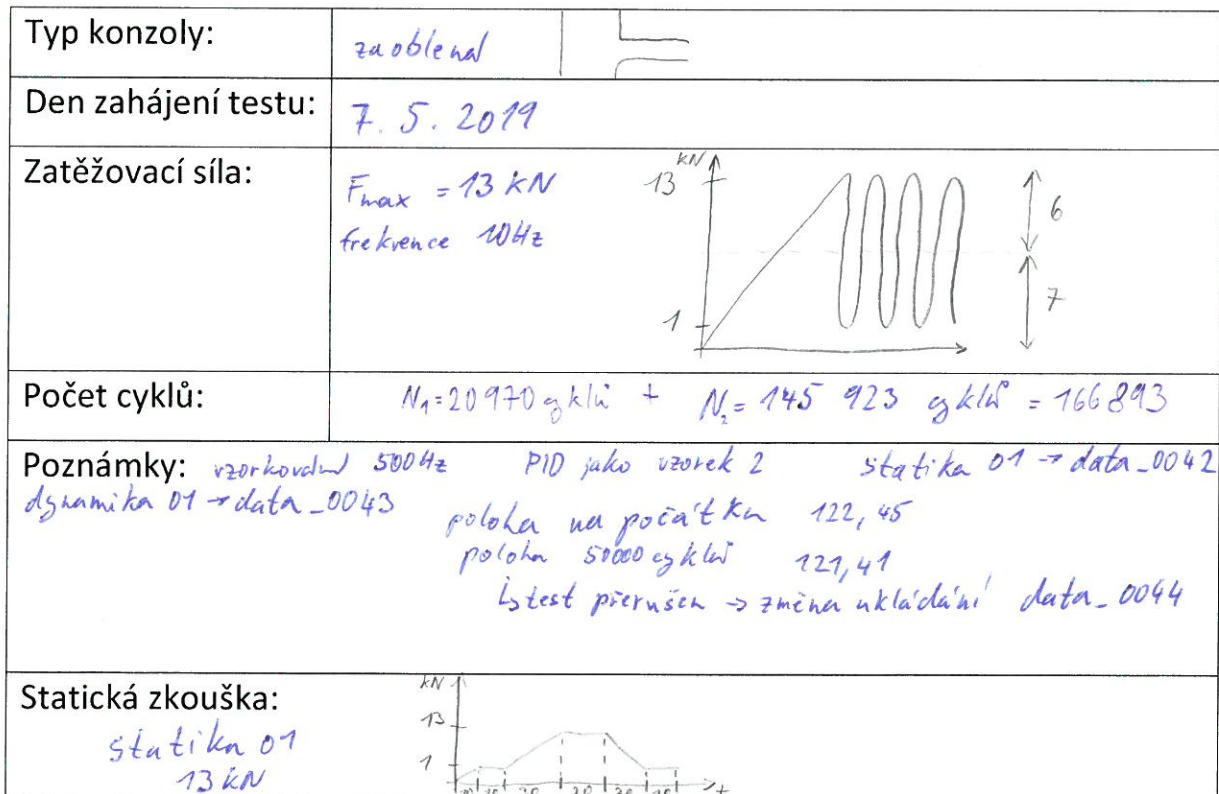 Typ konzoly: zaoblená
Den zahájení testu: 7. 5. 2019
Zatěžovací síla: Fmax = 13 kN
frekvence 10Hz
kN
13
1
6
7
Počet cyklů: N1=20970 cyklů + N2= 145 923 cyklů = 166893
Poznámky: vzorkování 500Hz PID jako vzorek 2 statika 01 → data_0042
dynamika 01 → data_0043
poloha na počátku 122,45
poloha 50000 cyklů 121,41
↳ test přerušen → změna ukládání data_0044
Statická zkouška:
statika 01
13 kN
kN
13
1
t